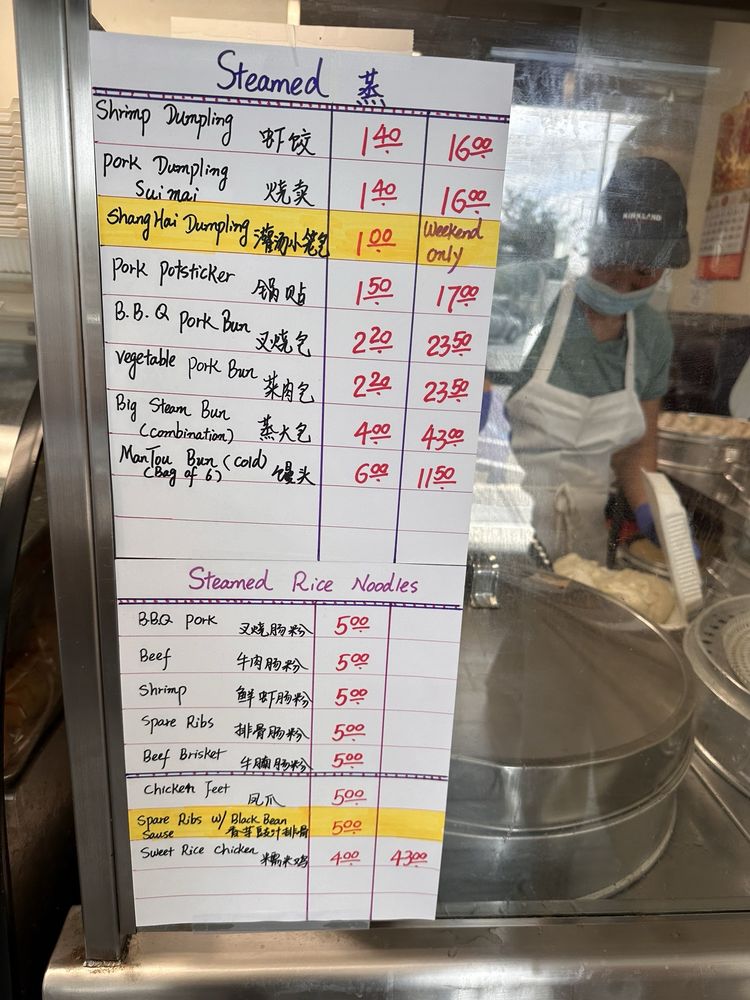 Steamed 蒸
Shrimp Dumpling 虾饺 1.40 16.00
Pork Dumpling
Sui mai 烧卖 1.40 16.00
ShangHai Dumpling 灌汤小笼包 1.00 Weekend only
Pork Potsticker 锅贴 1.50 17.00
B.B.Q Pork Bun 叉烧包 2.20 23.50
Vegetable Pork Bun 菜肉包 2.20 23.50
Big Steam Bun
(combination) 蒸大包 4.00 43.00
ManTou Bun (cold)
(Bag of 6) 馒头 6.00 11.50
Steamed Rice Noodles
BBQ Pork 叉烧肠粉 5.00
Beef 牛肉肠粉 5.00
Shrimp 鲜虾肠粉 5.00
Spare Ribs 排骨肠粉 5.00
Beef Brisket 牛腩肠粉 5.00
Chicken Feet 凤爪 5.00
Spare Ribs w/ Black Bean
Sause 排骨 5.00
Sweet Rice Chicken 糯米鸡 4.00 43.00
KIRKLAND